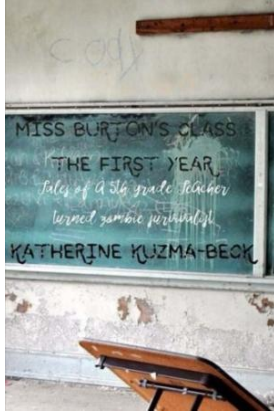 Cody
MISS BURTON'S CLASS
THE FIRST YEAR
Tales of A 5th grade Teacher
turned zombie survivalist
KATHERINE KUZMA-BECK